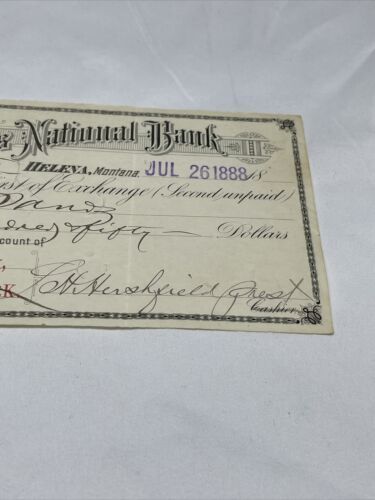 s National Bank
HELENA, Montana, JUL 26 1888 18
rst of Exchange (Second unpaid)
sand
ndred & fifty — Dollars
ccount of
K.
L.H. Hershfield Prest
Cashier.